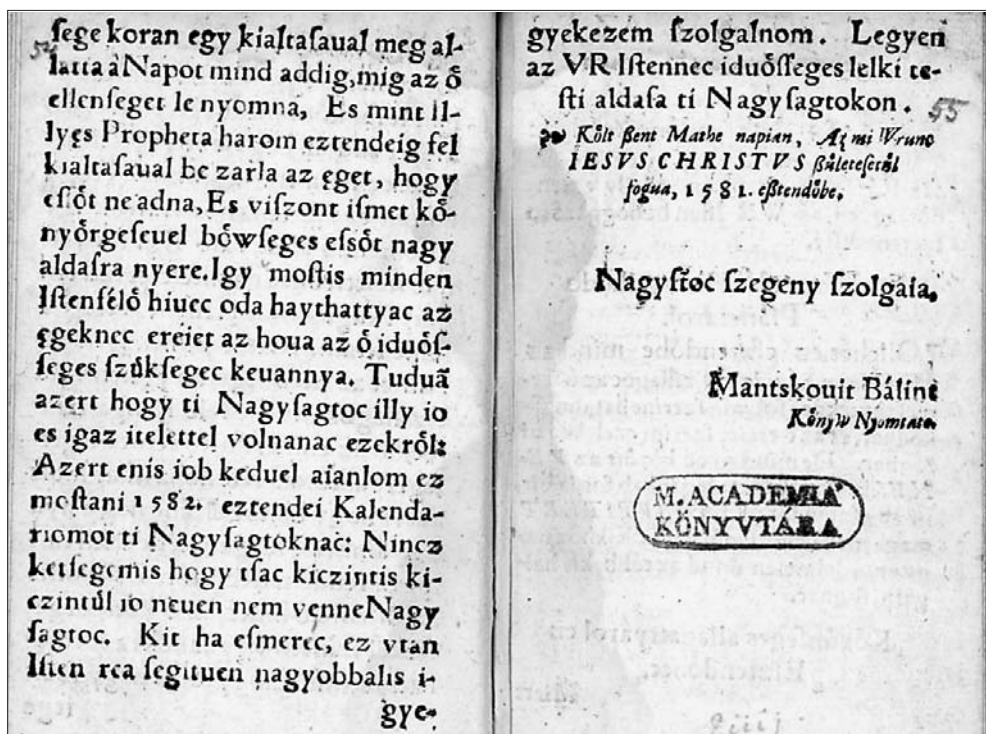 54
ſege koran egy kialtaſaual meg al-
latta à Napot mind addig, mig az ő
ellenſeget le nyomna, Es mint Il-
lyęs Propheta harom eztendeig fel
kialtaſaual be zarla az eget, hogy
eſſőt ne adna, Es viſzont iſmet kő-
nyőrgeſeuel bőwſeges eſsőt nagy
aldaſra nyere. Igy moſtis minden
Iſtenfélő hiuec oda haythattyac az
ęgeknec ereiet az houa az ő iduőſ-
ſeges ſzűkſegec keuannya. Tuduã
azert hogy ti Nagyſagtoc illy io
es igaz itelettel volnanac ezekről:
Azert enis iob keduel aianlom ez
moſtani 1582. eztendei Kalenda-
riomot ti Nagyſagtoknac: Nincz
ketſegemis hogy tſac kiczintis ki-
czintűl io neuen nem venne Nagy
ſagtoc. Kit ha eſmerec, ez vtan
Iſten rea ſegituen nagyobbalis i-
gye-
gyekezem ſzolgalnom. Legyen
az VR Iſtennec iduőſſeges lelki te-
ſti aldaſa ti Nagyſagtokon. 55
Kőlt ßent Mathe napian, Az mi Vrunc
IESVS CHRISTVS ßűleteſetűl
fogua, 1581. eßtendőbe.
Nagyſtoc ſzegeny ſzolgaia,
Mantskouit Bálint
Kőnyw Nyomtato.
M. ACADEMIA
KÖNYVTÁRA